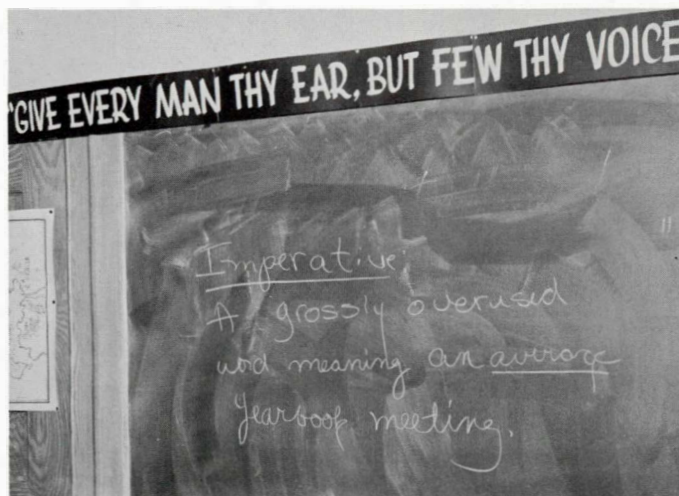 "GIVE EVERY MAN THY EAR, BUT FEW THY VOICE
Imperative:
A grossly overused
word meaning an average
yearbook meeting.